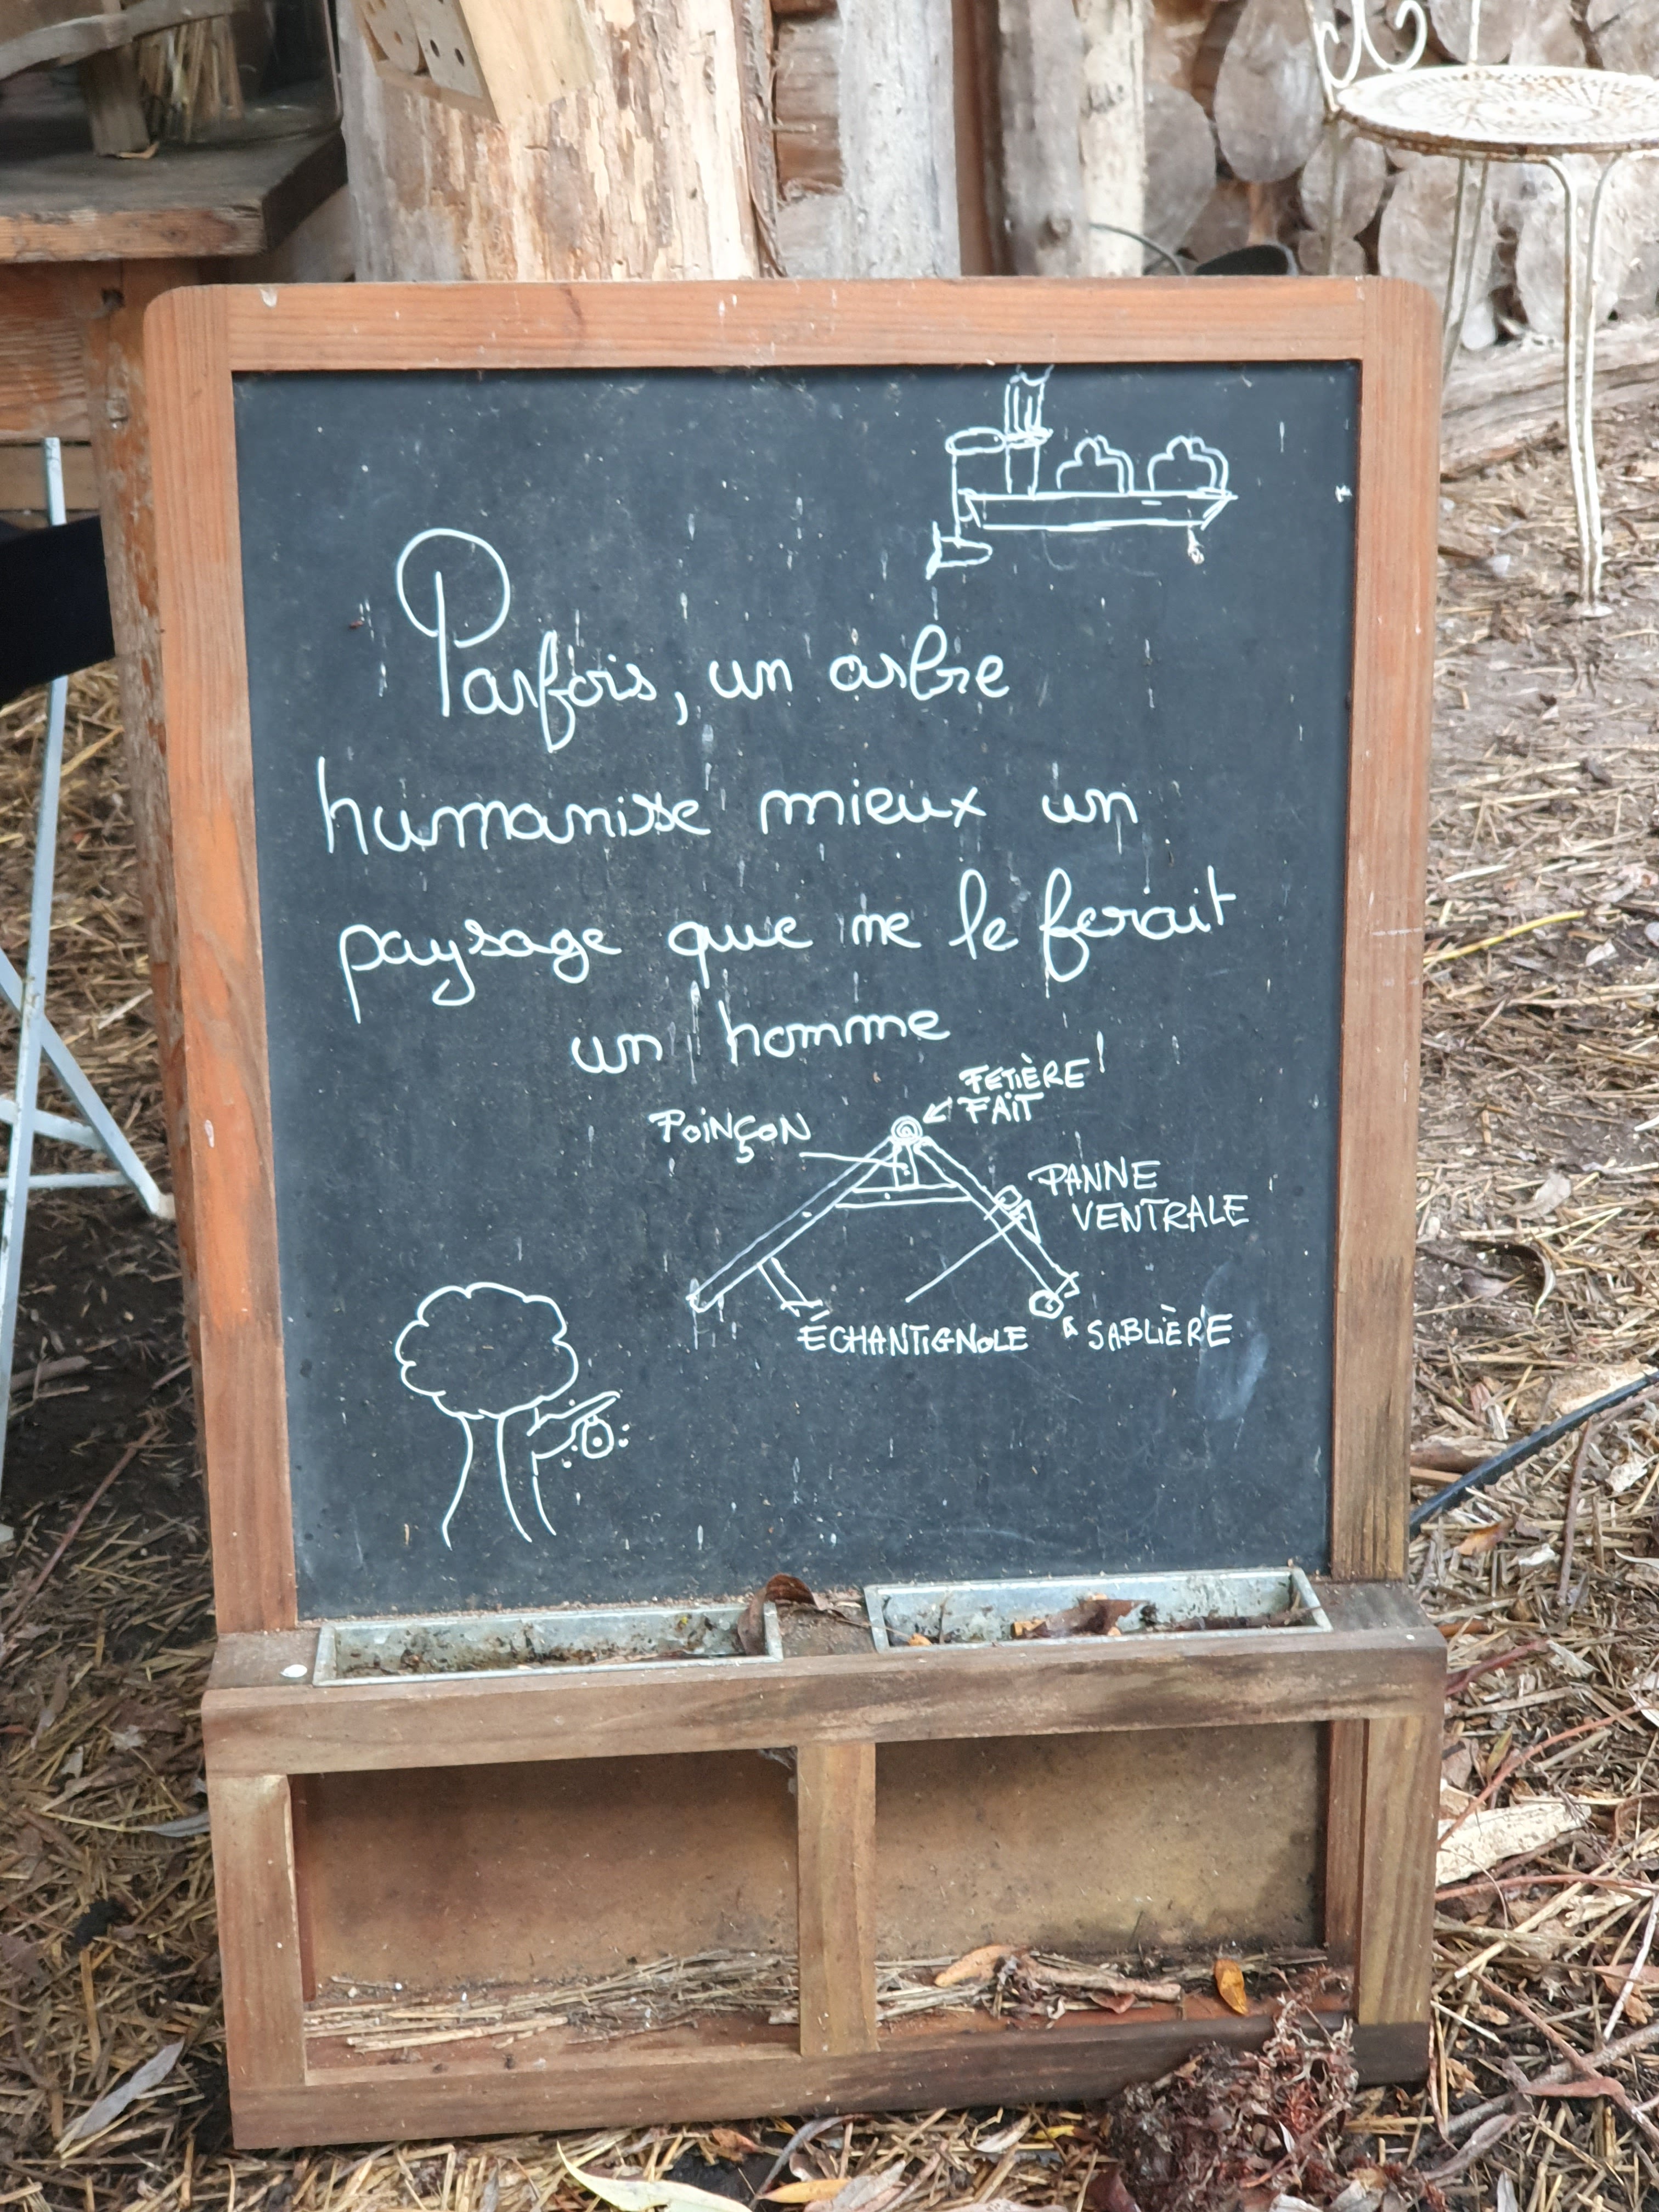 Parfois, un arbre
humanise mieux un
paysage que ne le ferait
un homme
FETIÈRE!
FAiT
POiNÇON
PANNE
VENTRALE
ÉCHANTiGNOLE
SABLiÈRE